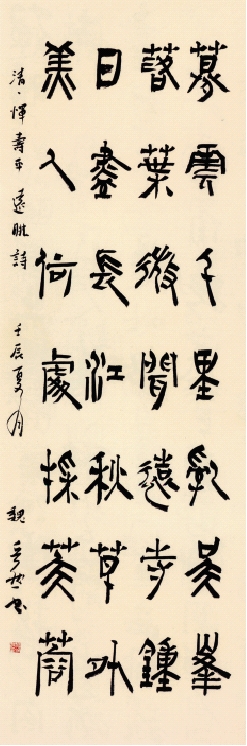 暮雲千里亂吳峯
落葉微聞遠寺鍾
日盡長江秋草外
美人何處採芙蓉
清、惲壽平遠眺詩 壬辰夏月 魏